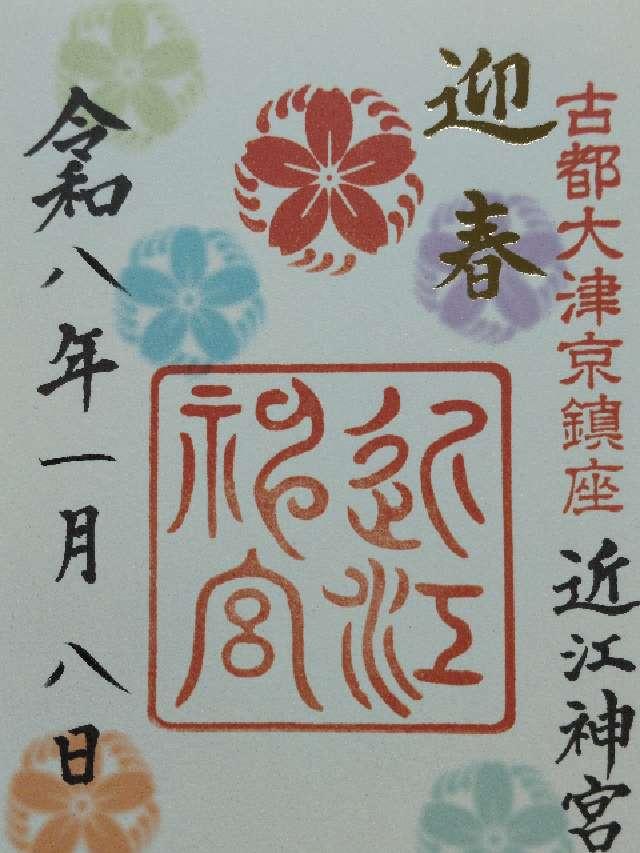 古都大津京鎮座
近江神宮
迎春
近江
神宮
令和八年一月八日